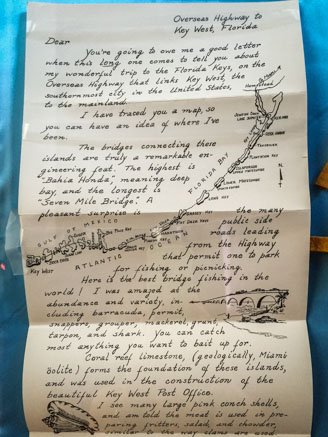 Overseas Highway to
Key West, Florida
Dear
You're going to owe me a good letter
when this long one comes to tell you about
my wonderful trip to the Florida Keys, on the
Overseas Highway that links Key West, the
southernmost city in the United States,
to the mainland.
I have traced you a map, so
you can have an idea of where I've
been.
The bridges connecting these
islands are truly a remarkable en-
gineering feat. The highest is
"Bahia Honda," meaning deep
bay, and the longest is
"Seven Mile Bridge". A
pleasant surprise is the many
public side
roads leading
from the Highway
that permit one to park
for fishing or picnicking.
Here is the best bridge fishing in the
world! I was amazed at the
abundance and variety, in-
cluding barracuda, permit,
snappers, grouper, mackerel, grunt,
tarpon, and shark. You can catch
most anything you want to bait up for.
Coral reef limestone, (geologically, Miami
Oolite) forms the foundation of these islands,
and was used in the construction of the
beautiful Key West Post Office.
I see many large pink conch shells,
and am told the meat is used in pre-
paring fritters, salad, and chowder,
similar to the way clams are used
Homestead
FLORIDA BAY
GULF OF MEXICO
ATLANTIC OCEAN
Key West
N